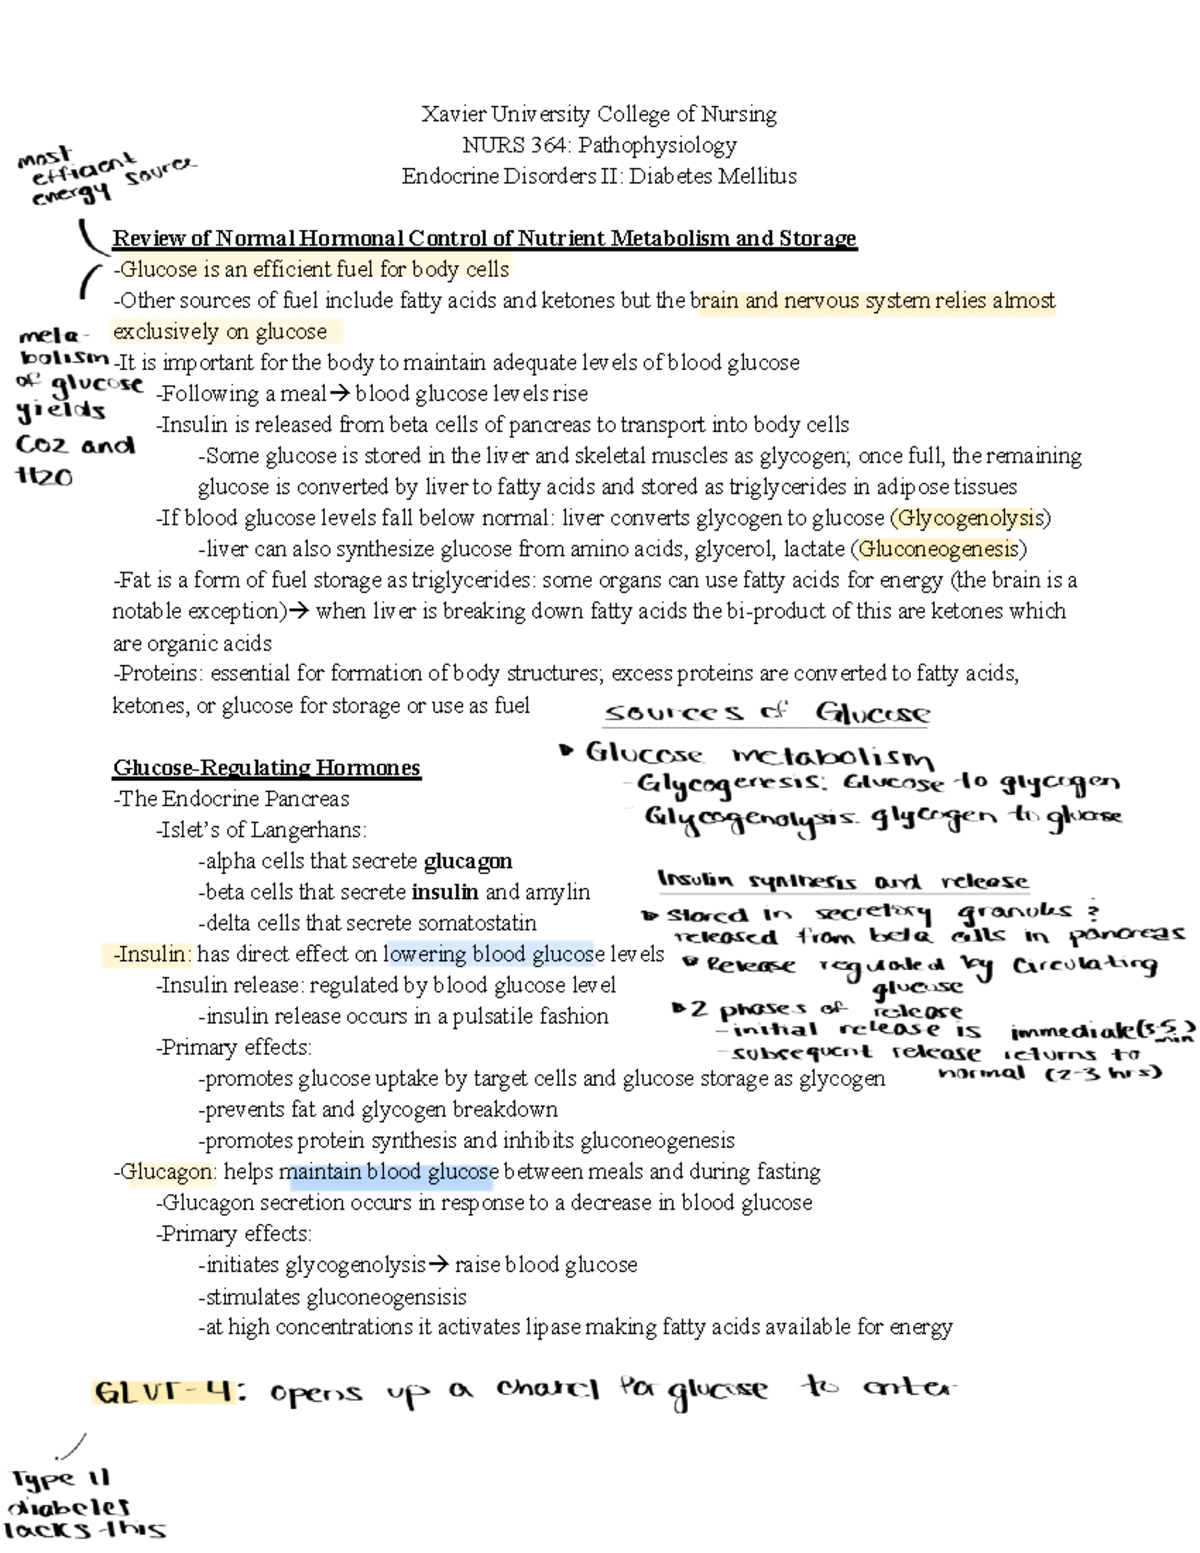 Xavier University College of Nursing
NURS 364: Pathophysiology
Endocrine Disorders II: Diabetes Mellitus
most
efficient
energy source
Review of Normal Hormonal Control of Nutrient Metabolism and Storage
-Glucose is an efficient fuel for body cells
-Other sources of fuel include fatty acids and ketones but the brain and nervous system relies almost
exclusively on glucose
meta-
bolism
of glucose
yields
CO2 and
H2O
-It is important for the body to maintain adequate levels of blood glucose
-Following a meal→ blood glucose levels rise
-Insulin is released from beta cells of pancreas to transport into body cells
-Some glucose is stored in the liver and skeletal muscles as glycogen; once full, the remaining
glucose is converted by liver to fatty acids and stored as triglycerides in adipose tissues
-If blood glucose levels fall below normal: liver converts glycogen to glucose (Glycogenolysis)
-liver can also synthesize glucose from amino acids, glycerol, lactate (Gluconeogenesis)
-Fat is a form of fuel storage as triglycerides: some organs can use fatty acids for energy (the brain is a
notable exception)→ when liver is breaking down fatty acids the bi-product of this are ketones which
are organic acids
-Proteins: essential for formation of body structures; excess proteins are converted to fatty acids,
ketones, or glucose for storage or use as fuel
sources of Glucose
Glucose metabolism
-Glycogenesis: Glucose to glycogen
Glycogenolysis: glycogen to glucose
Glucose-Regulating Hormones
-The Endocrine Pancreas
-Islet's of Langerhans:
-alpha cells that secrete glucagon
-beta cells that secrete insulin and amylin
-delta cells that secrete somatostatin
Insulin synthesis and release
stored in secretory granules ?
released from beta cells in pancreas
Release regulated by circulating
glucose
2 phases of release
-initial release is immediate (3-5 min)
-subsequent release returns to
normal (2-3 hrs)
-Insulin: has direct effect on lowering blood glucose levels
-Insulin release: regulated by blood glucose level
-insulin release occurs in a pulsatile fashion
-Primary effects:
-promotes glucose uptake by target cells and glucose storage as glycogen
-prevents fat and glycogen breakdown
-promotes protein synthesis and inhibits gluconeogenesis
-Glucagon: helps maintain blood glucose between meals and during fasting
-Glucagon secretion occurs in response to a decrease in blood glucose
-Primary effects:
-initiates glycogenolysis→ raise blood glucose
-stimulates gluconeogensisis
-at high concentrations it activates lipase making fatty acids available for energy
GLUT-4: opens up a chanel for glucose to enter
Type II
diabetes
lacks this